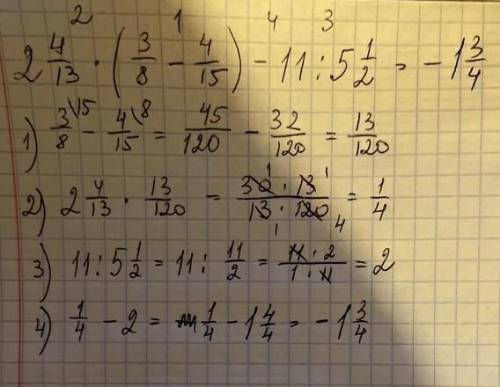 2 1 4 3
2 4/13 · (3/8 - 4/15) - 11 : 5 1/2 = - 1 3/4
1) 3/8 \15 - 4/15 \8 = 45/120 - 32/120 = 13/120
2) 2 4/13 · 13/120 = 30 · 13 / 13 · 120 = 1/4
3) 11 : 5 1/2 = 11 : 11/2 = 11 · 2 / 1 · 11 = 2
4) 1/4 - 2 = 1/4 - 1 4/4 = - 1 3/4